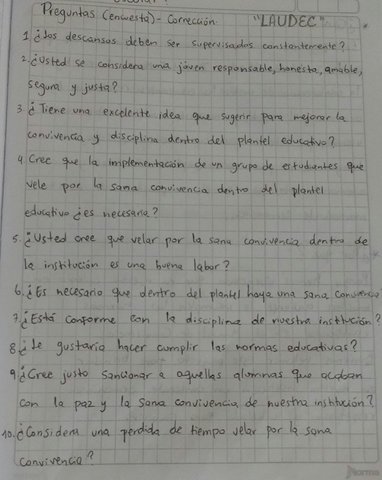 Preguntas (encuesta) - Corrección "LAUDEC"
1. ¿Los descansos deben ser supervisados constantemente?
2. ¿Usted se considera una joven responsable, honesta, amable,
segura y justa?
3. ¿Tiene una excelente idea que sugerir para mejorar la
convivencia y disciplina dentro del plantel educativo?
4 Cree que la implementación de un grupo de estudiantes que
vele por la sana convivencia dentro del plantel
educativo ¿es necesaria?
5. ¿Usted cree que velar por la sana convivencia dentro de
la institución es una buena labor?
6. ¿Es necesario que dentro del plantel haya una sana convivencia
7. ¿Está conforme con la disciplina de nuestra institución?
8 ¿le gustaría hacer cumplir las normas educativas?
9 ¿Cree justo sancionar a aquellas alumnas que acaban
con la paz y la sana convivencia de nuestra institución?
10. ¿Considera una perdida de tiempo velar por la sana
convivencia?
Norma